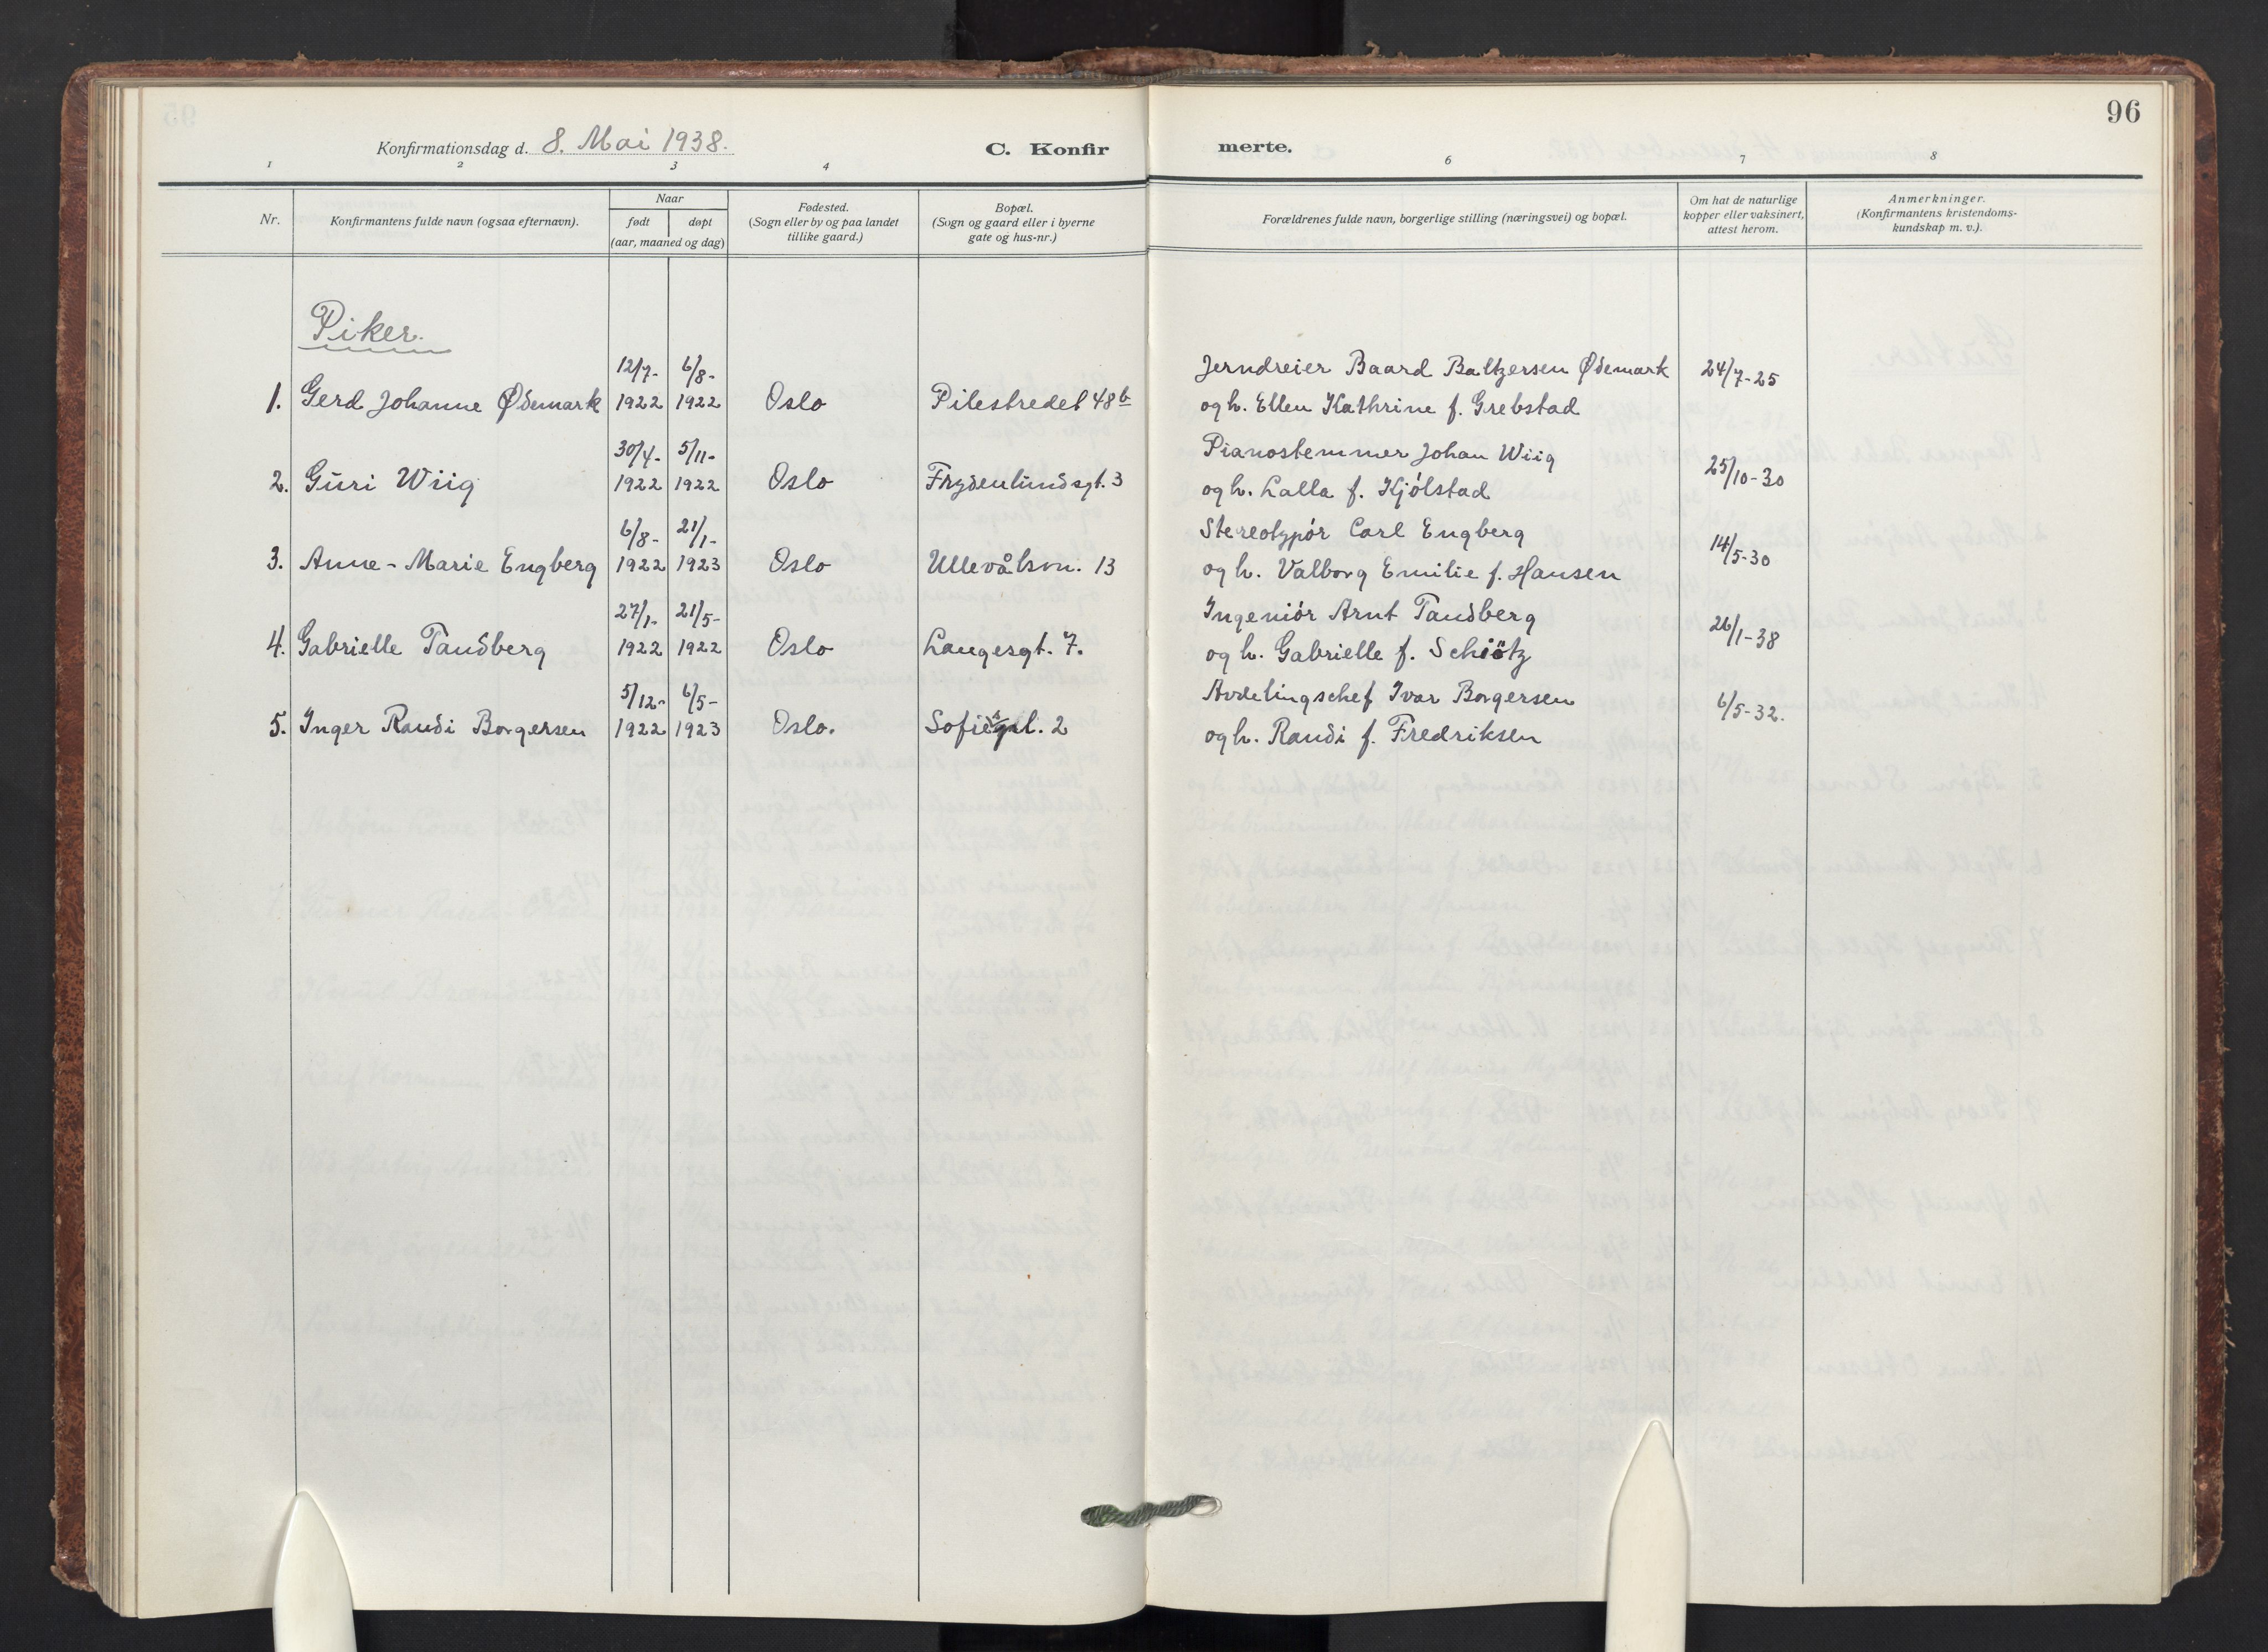 96
Konfirmationsdag d. 8. Mai 1938.
C. Konfirmerte.
1 2 3 4 6 7 8
Nr.
Konfirmantens fulde navn (ogsaa efternavn).
Naar
født døpt
(aar, maaned og dag)
Fødested.
(Sogn eller by og paa landet
tillike gaard.)
Bopæl.
(Sogn og gaard eller i byerne
gate og hus-nr.)
Forældrenes fulde navn, borgerlige stilling (næringsvei) og bopæl.
Om hat de naturlige
kopper eller vaksinert,
attest herom.
Anmerkninger.
(Konfirmantens kristendoms-
kundskap m. v.).
Piker.
12/7- 6/8- Jerndreier Baard Baltzersen Ødemark 24/7-25
1. Gerd Johanne Ødemark 1922 1922 Oslo Pilestredet 48 b og h. Ellen Kathrine f. Grebstad
30/4- 5/11- Pianostemmer Johan Wiig 25/10-30
2. Guri Wiig 1922 1922 Oslo Frydenlundsgt. 3 og h. Lalla f. Kjólstad
6/8- 21/1- Stereotypór Carl Engberg 14/5-30
3. Anne-Marie Engberg 1922 1923 Oslo Ullevålsvn. 13 og h. Valborg Emilie f. Hansen
27/1- 21/5- Ingeniór Arnt Tandberg 26/1-38
4. Gabrielle Tandberg 1922 1922 Oslo Langesgt. 7. og h. Gabrielle f. Schiötz
5/12- 6/5- Avdelingschef Ivar Borgersen 6/5-32.
5. Inger Randi Borgersen 1922 1923 Oslo. 2 og h. Randi f. Fredriksen